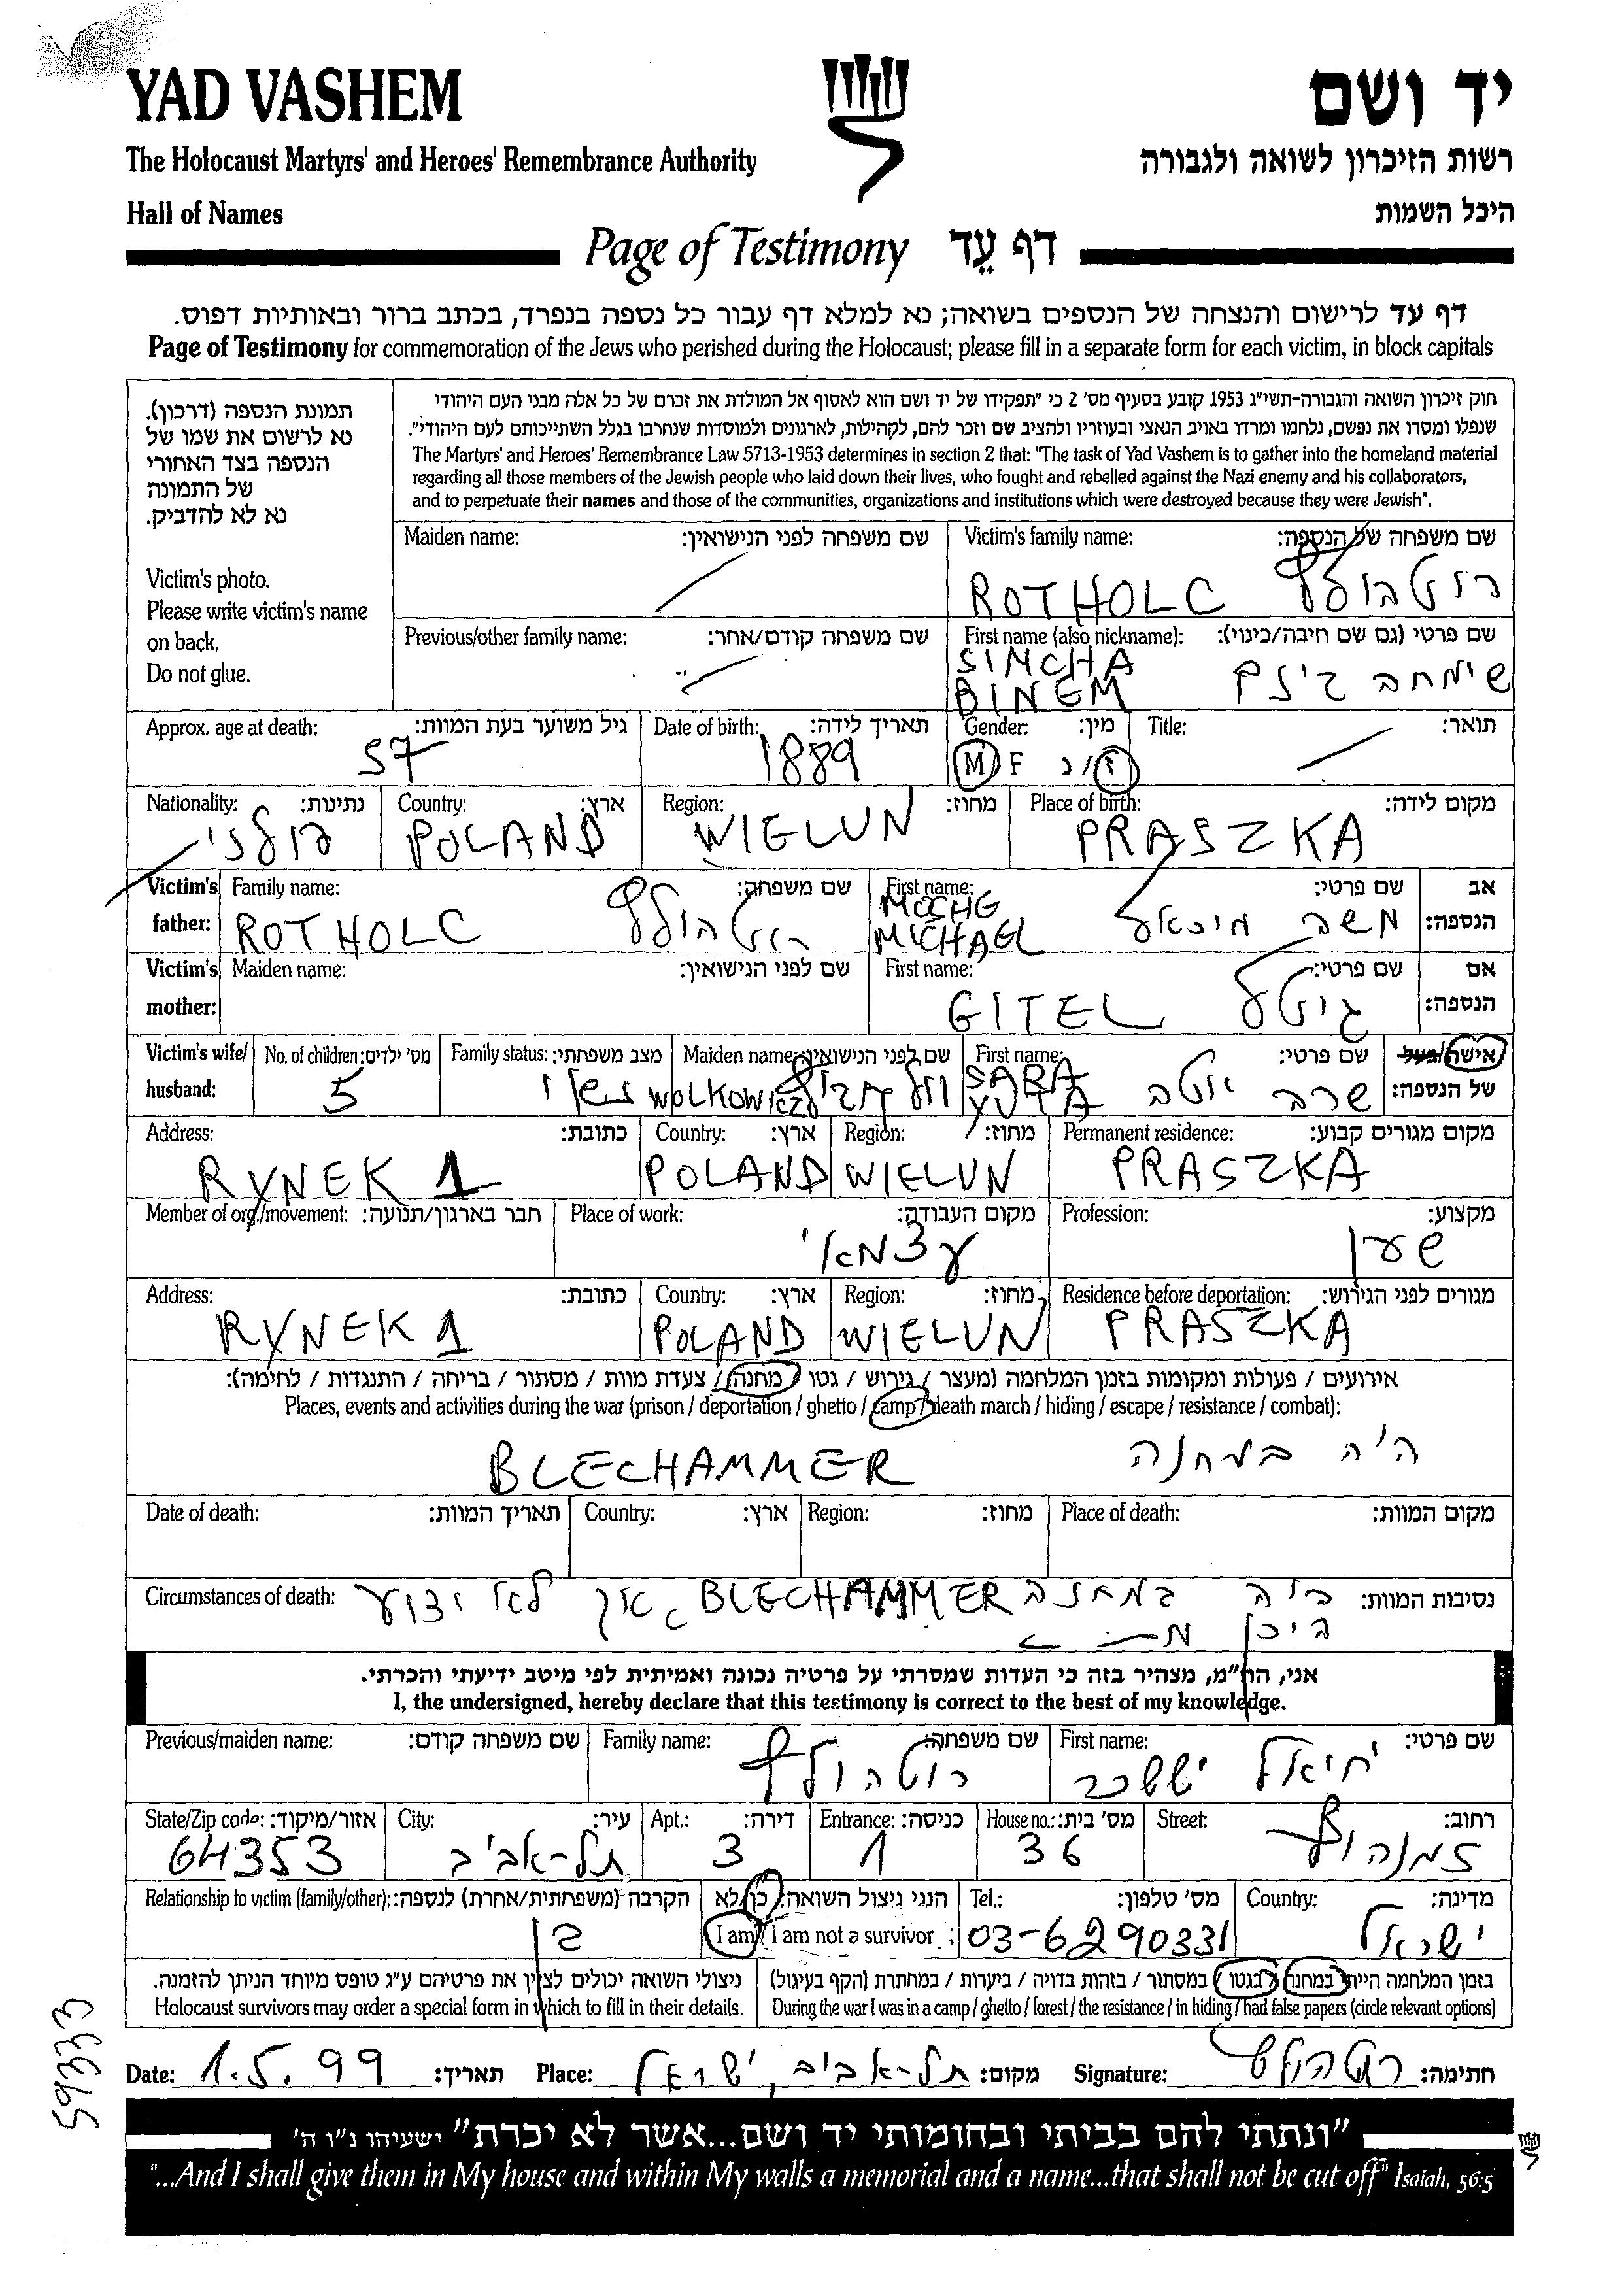 YAD VASHEM
יד ושם
The Holocaust Martyrs' and Heroes' Remembrance Authority
רשות הזיכרון לשואה ולגבורה
Hall of Names
היכל השמות
Page of Testimony דף עֵד
דף עד לרישום והנצחה של הנספים בשואה; נא למלא דף עבור כל נספה בנפרד, בכתב ברור ובאותיות דפוס.
Page of Testimony for commemoration of the Jews who perished during the Holocaust; please fill in a separate form for each victim, in block capitals
תמונת הנספה (דרכון).
נא לרשום את שמו של
הנספה בצד האחורי
של התמונה
נא לא להדביק.
Victim's photo.
Please write victim's name
on back.
Do not glue.
חוק זיכרון השואה והגבורה-תשי"ג 1953 קובע בסעיף מס' 2 כי "תפקידו של יד ושם הוא לאסוף אל המולדת את זכרם של כל אלה מבני העם היהודי
שנפלו ומסרו את נפשם, נלחמו ומרדו באויב הנאצי ובעוזריו ולהציב שם וזכר להם, לקהילות, לארגונים ולמוסדות שנחרבו בגלל השתייכותם לעם היהודי".
The Martyrs' and Heroes' Remembrance Law 5713-1953 determines in section 2 that: "The task of Yad Vashem is to gather into the homeland material
regarding all those members of the Jewish people who laid down their lives, who fought and rebelled against the Nazi enemy and his collaborators,
and to perpetuate their names and those of the communities, organizations and institutions which were destroyed because they were Jewish".
Maiden name: שם משפחה לפני הנישואין:
Victim's family name: שם משפחה של הנספה:
ROTHOLC רוטהולץ
Previous/other family name: שם משפחה קודם/אחר:
First name (also nickname): שם פרטי (גם שם חיבה/כינוי):
SIMCHA
BINEM שימחה בינם
Approx. age at death: גיל משוער בעת המוות:
57
Date of birth: תאריך לידה:
1889
Gender: מין:
M F ז/נ
Title: תואר:
Nationality: נתינות:
פולני
Country: ארץ:
POLAND
Region: מחוז:
WIELUN
Place of birth: מקום לידה:
PRASZKA
Victim's father:
Family name: שם משפחה:
ROTHOLC רוטהולץ
First name: שם פרטי:
MOSHE
MICHAEL משה מיכאל
אב הנספה:
Victim's mother:
Maiden name: שם לפני הנישואין:
First name: שם פרטי:
GITEL גיטל
אם הנספה:
Victim's wife/ husband:
No. of children: מס' ילדים:
5
Family status: מצב משפחתי:
נשוי
Maiden name: שם לפני הנישואין:
WOLKOWICZ
First name: שם פרטי:
SARA
YUTA שרה יוטה
אישה/בעל של הנספה:
Address: כתובת:
RYNEK 1
Country: ארץ:
POLAND
Region: מחוז:
WIELUN
Permanent residence: מקום מגורים קבוע:
PRASZKA
Member of org./movement: חבר בארגון/תנועה:
Place of work: מקום העבודה:
עצמאי
Profession: מקצוע:
שען
Address: כתובת:
RYNEK 1
Country: ארץ:
POLAND
Region: מחוז:
WIELUN
Residence before deportation: מגורים לפני הגירוש:
PRASZKA
אירועים / פעולות ומקומות בזמן המלחמה (מעצר / גירוש / גטו / מחנה / צעדת מוות / מסתור / בריחה / התנגדות / לחימה):
Places, events and activities during the war (prison / deportation / ghetto / camp / death march / hiding / escape / resistance / combat):
היה במחנה BLECHAMMER
Date of death: תאריך המוות:
Country: ארץ:
Region: מחוז:
Place of death: מקום המוות:
Circumstances of death: נסיבות המוות:
היה במחנה BLECHAMMER, אך לא ידוע
היכן מת
אני, הח"מ, מצהיר בזה כי העדות שמסרתי על פרטיה נכונה ואמיתית לפי מיטב ידיעתי והכרתי.
I, the undersigned, hereby declare that this testimony is correct to the best of my knowledge.
Previous/maiden name: שם משפחה קודם:
Family name: שם משפחה:
רוטהולץ
First name: שם פרטי:
יחיאל יששכר
State/Zip code: אזור/מיקוד:
64353
City: עיר:
תל-אביב
Apt.: דירה:
3
Entrance: כניסה:
1
House no.: מס' בית:
36
Street: רחוב:
זמנהוף
Relationship to victim (family/other): הקרבה (משפחתית/אחרת) לנספה:
בן
הנני ניצול השואה: כן/לא
I am / I am not a survivor
Tel.: מס' טלפון:
03-6290331
Country: מדינה:
ישראל
ניצולי השואה יכולים לציין את פרטיהם ע"ג טופס מיוחד הניתן להזמנה.
Holocaust survivors may order a special form in which to fill in their details.
בזמן המלחמה הייתי במחנה / בגטו / במסתור / בזהות בדויה / ביערות / במחתרת (הקף בעיגול)
During the war I was in a camp / ghetto / forest / the resistance / in hiding / had false papers (circle relevant options)
Date: 1.5.99 תאריך:
Place: תל-אביב, ישראל מקום:
Signature: רוטהולץ חתימה:
59333
"ונתתי להם בביתי ובחומותי יד ושם...אשר לא יכרת" ישעיהו נ"ו ה'
"...And I shall give them in My house and within My walls a memorial and a name...that shall not be cut off" Isaiah, 56:5